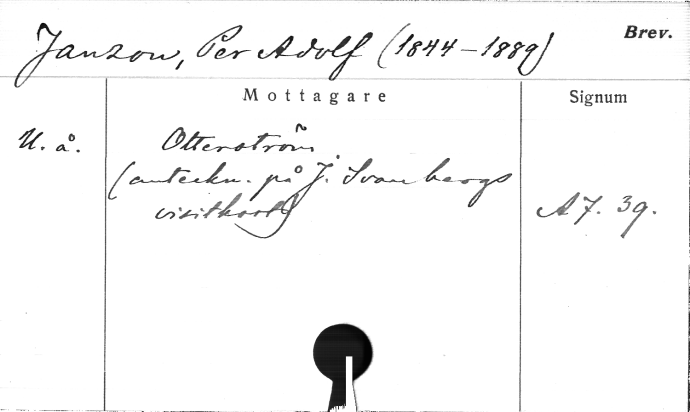 Janzon, Per Adolf (1844-1889)
Brev.
Mottagare
Signum
U. å.
Otterström
(anteckn. på J. Svanbergs
visitkort)
A 7. 39.